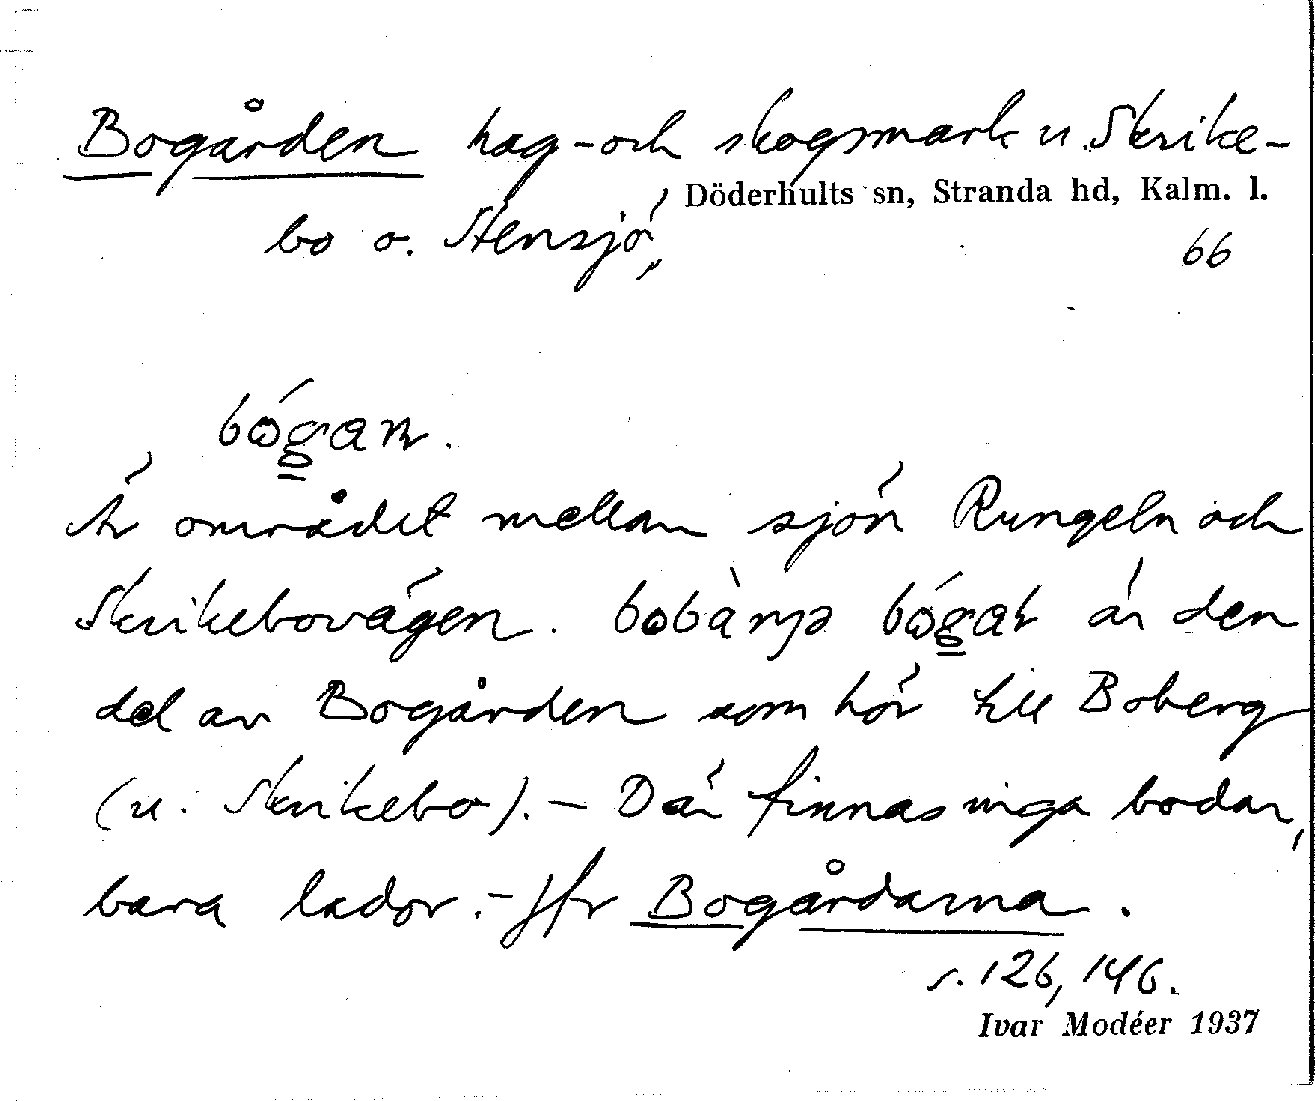 Bogården hag- och skogsmark u. Skrike-
Döderhults sn, Stranda hd, Kalm. l.
bo o. Stensjö,
66
bógan.
Är området mellan sjön Rungeln och
Skrikebovägen. bobàŋə bógaṙ är den
del av Bogården som hör till Boberg
(u. Skrikebo). – Där finnas inga bodar,
bara lador. – Jfr Bogårdarna.
s. 126, 146.
Ivar Modéer 1937